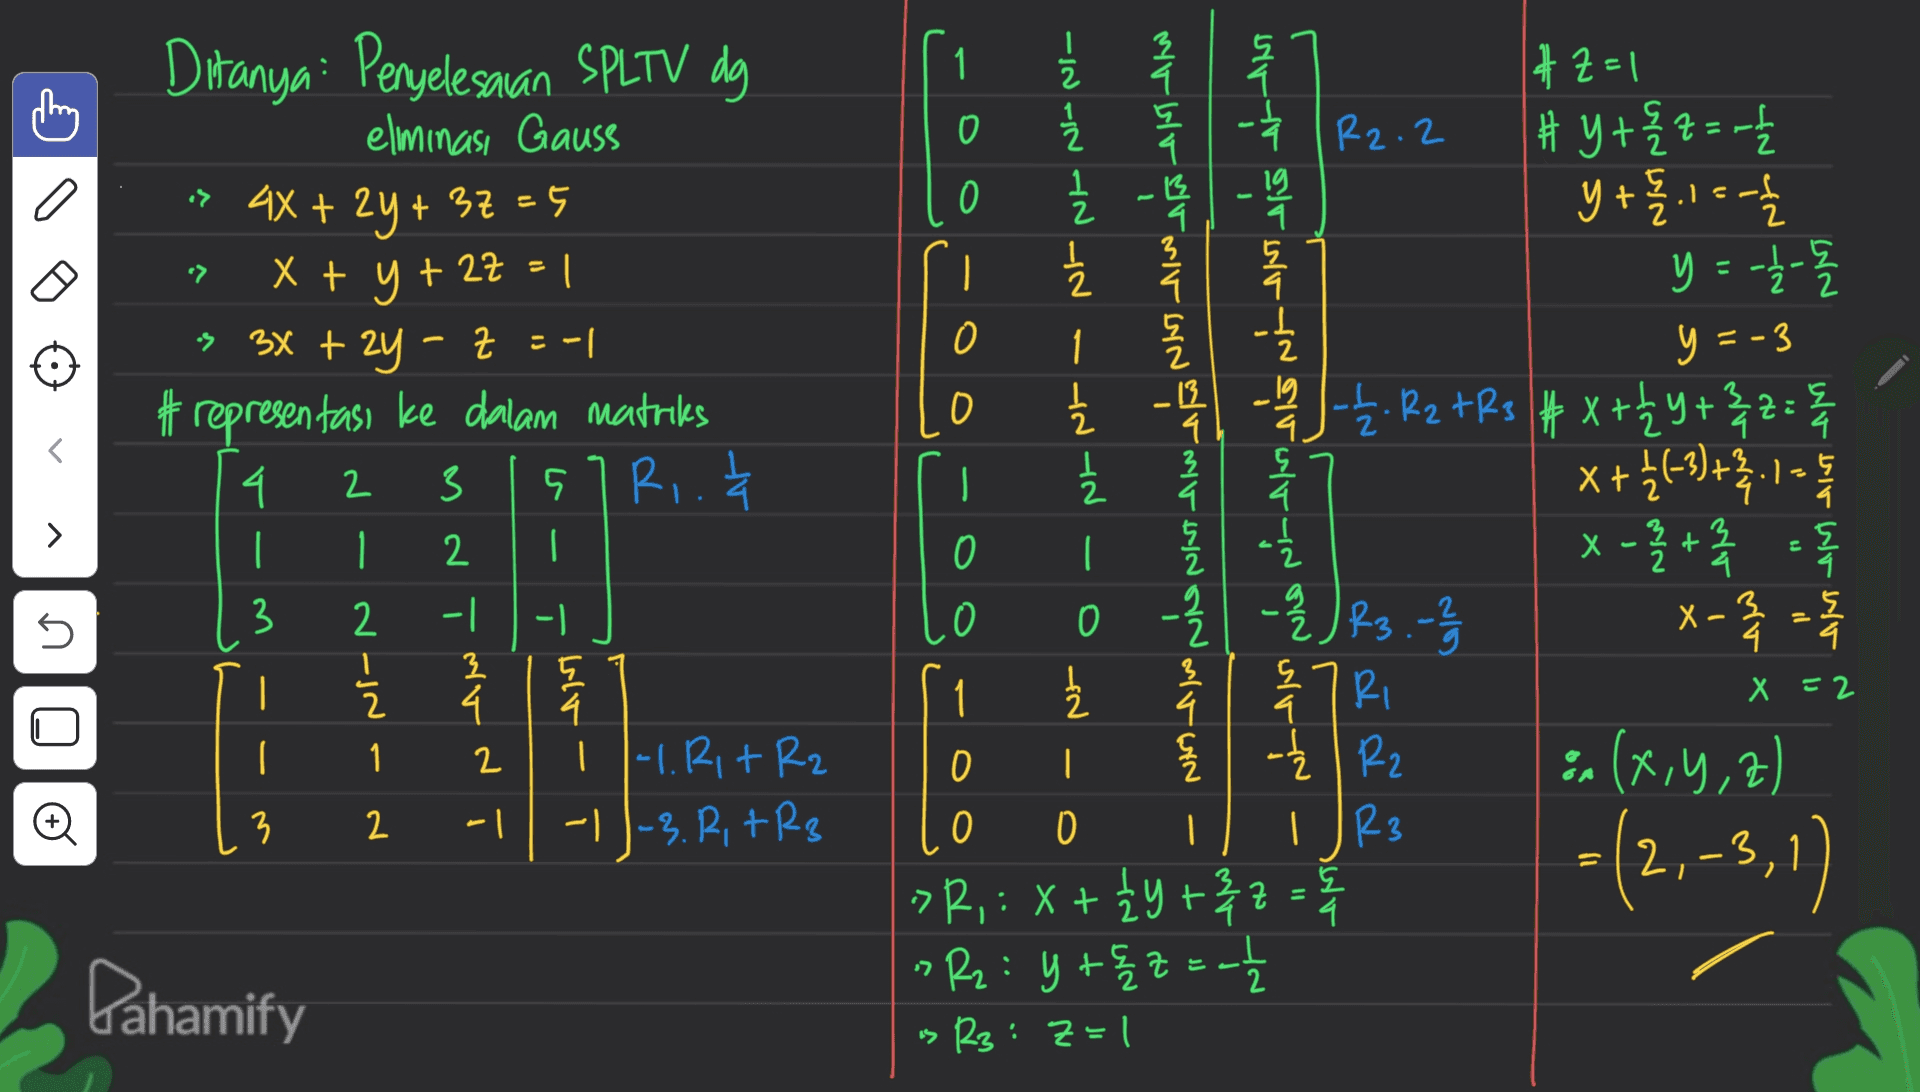 Ditanya: Penyelesaian SPLTV dg
elminasi Gauss
-> 4x + 2y + 3z = 5
-> x + y + 2z = 1
-> 3x + 2y - z = -1
# representasi ke dalam matriks
[ 4 2 3 | 5 ] R1 . 1/4
[ 1 1 2 | 1 ]
[ 3 2 -1 | -1 ]
[ 1 1/2 3/4 | 5/4 ]
[ 1 1 2 | 1 ] -1. R1 + R2
[ 3 2 -1 | -1 ] -3. R1 + R3
Pahamify
[ 1 1/2 3/4 | 5/4 ]
[ 0 1/2 5/4 | -1/4 ] R2 . 2
[ 0 1/2 -13/4 | -19/4 ]
[ 1 1/2 3/4 | 5/4 ]
[ 0 1 5/2 | -1/2 ]
[ 0 1/2 -13/4 | -19/4 ] -1/2 . R2 + R3
[ 1 1/2 3/4 | 5/4 ]
[ 0 1 5/2 | -1/2 ]
[ 0 0 -9/2 | -9/2 ] R3 . -2/9
[ 1 1/2 3/4 | 5/4 ] R1
[ 0 1 5/2 | -1/2 ] R2
[ 0 0 1 | 1 ] R3
-> R1 : x + 1/2 y + 3/4 z = 5/4
-> R2 : y + 5/2 z = -1/2
-> R3 : z = 1
# z = 1
# y + 5/2 z = -1/2
y + 5/2 . 1 = -1/2
y = -1/2 - 5/2
y = -3
# x + 1/2 y + 3/4 z = 5/4
x + 1/2 (-3) + 3/4 . 1 = 5/4
x - 3/2 + 3/4 = 5/4
x - 3/4 = 5/4
x = 2
∴ (x, y, z)
= (2, -3, 1)